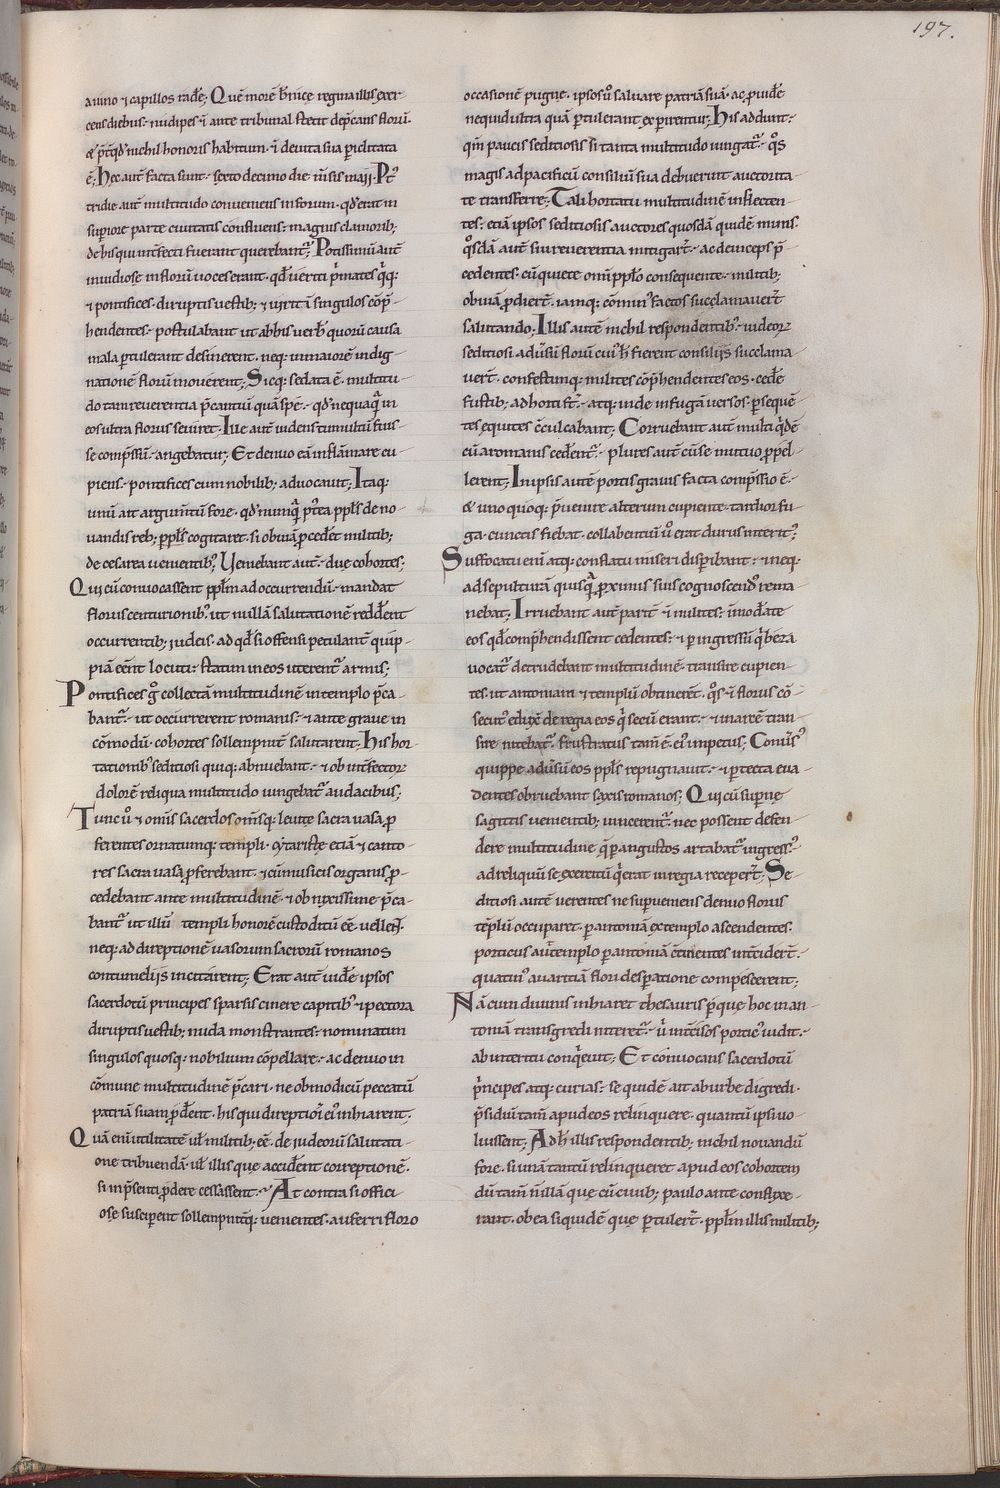 197.
a uino ⁊ capillos radēt; Quē morē b̄nice regina illis exer-
cens diebus· nudipes· ī ante tribunal stetit dep̄cans florū·
& p̄t qd̄ nichil honoris habitum· ī de uita sua piclitata
ē; Hec aut̄ facta sunt· sexto decimo die m̄sis maji· Post
tridie aut̄ multitudo conueniens in forum· qd̄ erat in
supiore parte ciuitatis confluens· magnis clamorib;
de his qui int̄fecti fuerant querebant̄; Potissimū aut̄
inuidiose in florū uoces erant· qd̄ uerti p̄mates q̄q;
⁊ pontifices· diruptis uestib; & uirtī singulos cōp̄-
hendentes· postulabant ut ab his uerb̄ quorū causa
mala ptulerant desinerent· neq; in maiorē indig-
nationē florū mouerent; Sicq; sedata ē· multitu-
do tam reuerentia p̄cantiū quā spe· qd̄ nequaq̄ in
eos ultra florus seuiret· Ille aut̄ uidens tumultū fuis-
se comp̄ssū· angebatur; Et denuo eā inflāmare cu-
piens· pontifices cum nobilib; aduocauit; Itaq;
unū ait argum̄tū fore· qd̄ nunq̄ p̄tea ppl̄s de no-
uandis reb; ppl̄s cogitaret· si obuiā pcedet militib;
de cesarea uenientib; Veniebant aut̄· due cohortes;
Qui cū conuocassent ppl̄m ad occurrendū· mandat
florus centurionib; ut nullā salutationē reddēnt
occurrentib; iudeis· ad qd̄ si offensi petulant̄ quip-
piā eēnt locuti· statim in eos uterent̄ armis;
Pontifices g̊ collectā multitudinē in templo p̄ca-
bant̄· ut occurrerent romanis· & ante graue in
cōmodū· cohortes sollempnit̄ salutarent; His hor-
tationib; seditiosi quiq; abnuebant· & ob int̄fector
dolorē reliqua multitudo iungebat̄ audacibus;
Tunc u̇ & om̄is sacerdos om̄isq; leuite sacra uasa p
ferentes ornatumq; templi· cytariste etiā & canto-
res sacra uasa pferebant· & cū musicis organis p-
cedebant ante multitudinē· & ob nixissime p̄ca-
bant̄ ut illū templi honorē custoditū eē uellent·
neq; ad direptionē uasorum sacrorū romanos
contumelijs incitarent; Erat aut̄ uidēe ipsos
sacerdotū principes sparsis cinere capitib; ⁊ pectora
diruptis uestib; nuda monstrantes· nominatim
singulos quosq; nobilium cōpellare· ac denuo in
cōmune multitudinē p̄cari· ne ob modicū peccatū
patriā suam pdent· his qui direptioī ei inhiarent;
Quā enī utilitatē ut̄ militib; eē· de iudeorū salutati-
one tribuendā· ut̄ illis que accidēnt correptionē·
si inp̄senti pdere cessassent· At contra si offici
ose susciperent sollempnit̄q; uenientes· auferri floro
occasionē pugne· ipsos u̇ saluare patriā suā· ac puidē
ne quid ultra quā ptulerant expirentur; His addunt·
qm̄ paucis seditiosis si tanta multitudo iungat̄· q̊s
magis ad pacificū consiliū sua debuerunt auctorita-
te transferre; Tali hortatu multitudinē inflecten-
tes· etiā ipsos seditiosis auctores quosdā quidē minis·
q̊sdā aut̄ sui reuerentia mitigart̄· ac deinceps p̄
cedentes· cū quiete om̄i pplo consequente· militib;
obuiā pdiert̄· iamq; cōmin̓ factos succlamauert̄
salutando; Illis autē nichil respondentib;· iudeor
seditiosi· aduīsū florū cui̓ h̄ fierent consilijs succlama-
uert̄· confestimq; milites cōp̄hendentes eos· cedēt
fustib; adhortit̄· atq; inde in fugam uersos· psequē-
tes equites cēulcabant; Corruebant aut̄ multi q̄dē
cū a romanis cedent̄· plures aut̄ cū se mutuo propel-
lerent; In ipsis autē portis grauis facta comp̄ssio ē·
& uno quoq; p̄uenire alterum cupiente· tardior fu-
ga· cunctis fiebat· collabentiū u̇ erat durus interit̓;
Suffocatu enī atq; conflatu miseri disp̄ibant· & neq;
ad sepulturā quisq̄ pximus suis cognoscend̓ rema
nebat; Irruebant aut̄ part̄ ī milites· īmod̄ate
eos qd̄ comp̄hendissent cedentes· & p ingressū q̓ beza
uocat̄ detrudebant multitudinē· transire cupien-
tes· ut antoniam & templū obtinerēt· q̊s· ī florus cō-
secut̓ eduxē de regia eos q̓ secū erant· & in arcē tran-
sire nitebat̄· frustratus tam̄ ē· ei̓ impetus; Conuīs̓
quippe aduīsū eos ppl̄s repugnauit· & p tecta eua
dentes obruebant saxis romanos; Qui cū superne
sagittis uenientib; uincerent̄· nec possent defen-
dere multitudine q̄ p angustos artabat̄ ingress̓·
ad reliquū se exercitū q̓ erat in regia recepert̄; Se-
ditiosi autē uerentes ne supueniens denuo florus
tēplū occuparet· p antoniā ex templo ascendentes·
porticus aut̄ e templo p antoniā cōtinentes int̄cidert̄·
quatin̓ auaritiā flori desperatione compescerent;
Nā cum diuinis inhiaret thesauris p̄que hoc in an-
toniam transgredi interet̄· ū int̄cīsos portic̓ uidit·
ab intentu conq̓euit; Et conuocans sacerdotū
p̄ncipes atq; curias· se quidē ait ab urbe digredi·
p̄sidiū tam̄ apud eos relinquere· quantū ipsi uo-
luissent; Ad h̄ illis respondentib; nichil nouandū
fore· si unā tantū relinqueret apud eos cohortem
dū tam̄ n̄ illā que cū ciuib; paulo ante conflixe-
rant· ob ea siquidē que ptulert̄· pplm̄ illis militib;